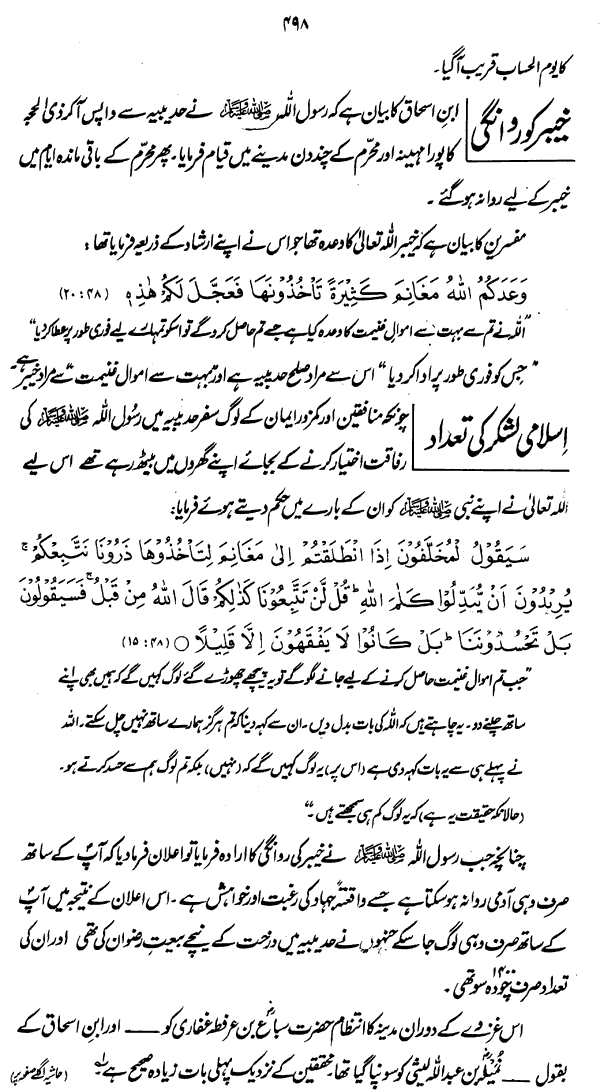 ۴۹۸
کا یوم الحساب قریب آگیا۔
خیبر کو روانگی
ابن اسحاق کا بیان ہے کہ رسول اللہ ﷺ نے حدیبیہ سے واپس آکر ذی الحجہ
کا پورا مہینہ اور محرّم کے چند دن مدینے میں قیام فرمایا۔ پھر محرّم کے باقی ماندہ ایام میں
خیبر کے لیے روانہ ہوگئے۔
مفسرین کا بیان ہے کہ خیبر اللہ تعالیٰ کا وعدہ تھا جو اس نے اپنے ارشاد کے ذریعہ فرمایا تھا:
وَعَدَكُمُ اللهُ مَغَانِمَ كَثِيْرَةً تَأْخُذُوْنَهَا فَعَجَّلَ لَكُمْ هٰذِهٖ (۲۰:۴۸)
"اللہ نے تم سے بہت سے اموال غنیمت کا وعدہ کیا ہے جسے تم حاصل کرو گے تو اس کو تمہارے لیے فوری طور پر عطا کردیا"
"جس کو فوری طور پر ادا کردیا" اس سے مراد صلح حدیبیہ ہے اور "بہت سے اموال غنیمت" سے مراد خیبر ہے۔
اسلامی لشکر کی تعداد
چونکہ منافقین اور کمزور ایمان کے لوگ سفر حدیبیہ میں رسول اللہ ﷺ کی
رفاقت اختیار کرنے کے بجائے اپنے گھروں میں بیٹھ رہے تھے اس لیے
اللہ تعالیٰ نے اپنے نبی ﷺ کو ان کے بارے میں حکم دیتے ہوئے فرمایا:
سَيَقُوْلُ لْمُخَلَّفُوْنَ اِذَا انْطَلَقْتُمْ اِلٰى مَغَانِمَ لِتَأْخُذُوْهَا ذَرُوْنَا نَتَّبِعْكُمْ ۚ
يُرِيْدُوْنَ اَنْ يُّبَدِّلُوْا كَلٰمَ اللهِ ؕ قُلْ لَّنْ تَتَّبِعُوْنَا كَذٰلِكُمْ قَالَ اللهُ مِنْ قَبْلُ ۚ فَسَيَقُوْلُوْنَ
بَلْ تَحْسُدُوْنَنَا ؕ بَلْ كَانُوْا لَا يَفْقَهُوْنَ اِلَّا قَلِيْلًا ○ (۱۵:۴۸)
"جب تم اموال غنیمت حاصل کرنے کے لیے جانے لگو گے تو یہ پیچھے چھوڑے گئے لوگ کہیں گے کہ ہمیں بھی اپنے
ساتھ چلنے دو۔ یہ چاہتے ہیں کہ اللہ کی بات بدل دیں۔ ان سے کہہ دینا کہ تم ہرگز ہمارے ساتھ نہیں چل سکتے۔ اللہ
نے پہلے ہی سے یہ بات کہہ دی ہے (اس پر) یہ لوگ کہیں گے کہ (نہیں) بلکہ تم لوگ ہم سے حسد کرتے ہو۔
(حالانکہ حقیقت یہ ہے) کہ یہ لوگ کم ہی سمجھتے ہیں۔"
چنانچہ جب رسول اللہ ﷺ نے خیبر کی روانگی کا ارادہ فرمایا تو اعلان فرمادیا کہ آپؐ کے ساتھ
صرف وہی آدمی روانہ ہوسکتا ہے جسے واقعۃً جہاد کی رغبت اور خواہش ہے۔ اس اعلان کے نتیجہ میں آپؐ
کے ساتھ صرف وہی لوگ جا سکے جنہوں نے حدیبیہ میں درخت کے نیچے بیعتِ رضوان کی تھی اور ان کی
تعداد صرف چودہ سو ۱۴۰۰ تھی۔
اس غزوے کے دوران مدینہ کا انتظام حضرت سباعؓ بن عرفطہ غفاری کو —— اور ابن اسحاق کے
بقول —— نُمیلہؓ بن عبداللہ لیثی کو سونپا گیا تھا۔ محققین کے نزدیک پہلی بات زیادہ صحیح ہے۔ (حاشیہ اگلے صفحہ پر)